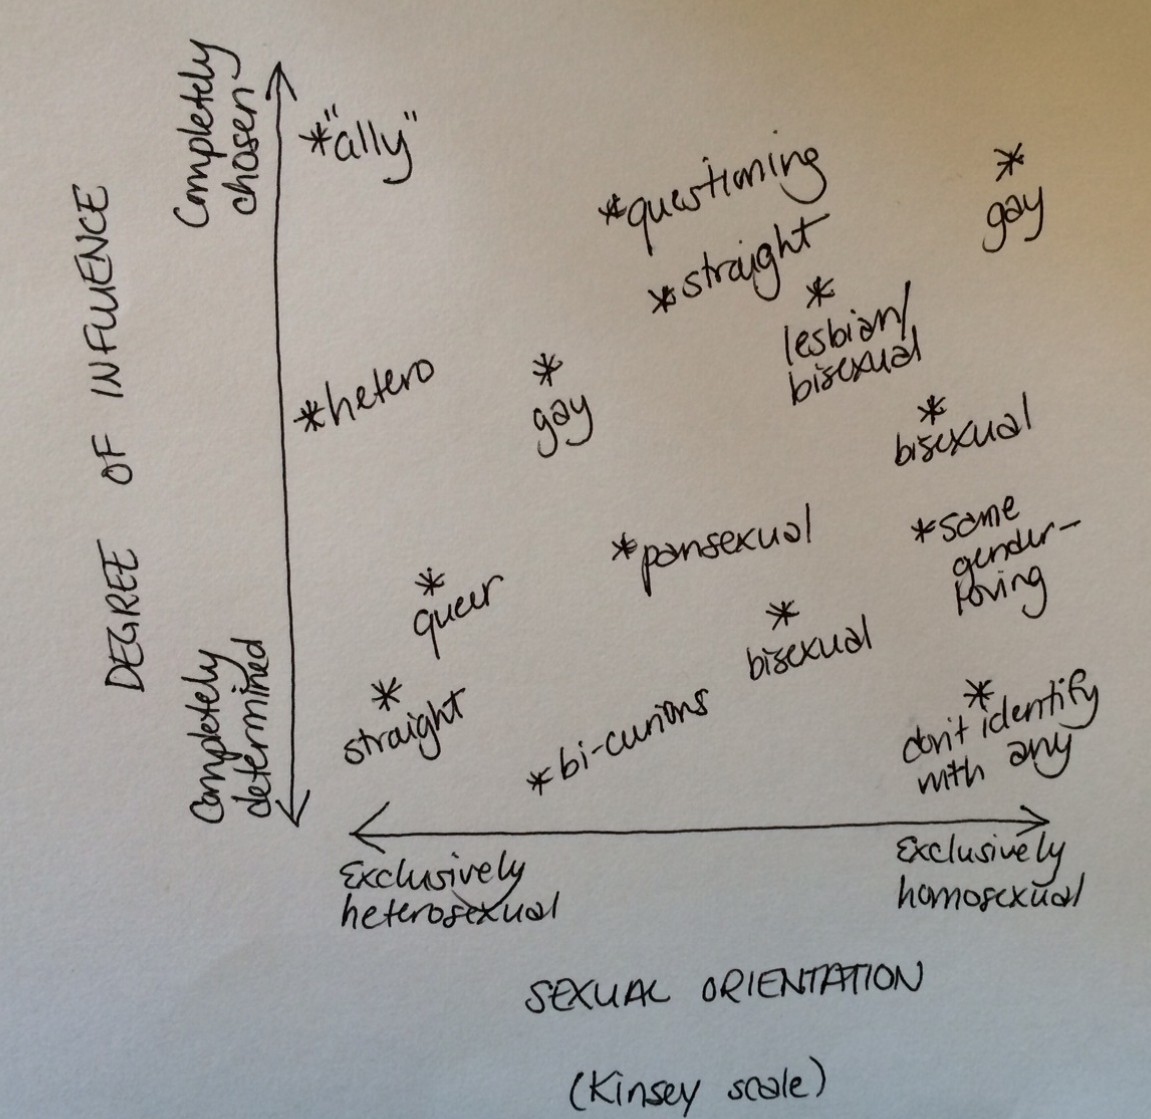 Completely
chosen
DEGREE OF INFLUENCE
Completely
determined
*"ally"
*questioning
*
gay
*straight
*
lesbian/
bisexual
*hetero
*
gay
*
bisexual
*pansexual
*same
gender-
loving
*
queer
*
bisexual
*
straight
*bi-curious
*
don't identify
with any
Exclusively
heterosexual
Exclusively
homosexual
SEXUAL ORIENTATION
(Kinsey scale)